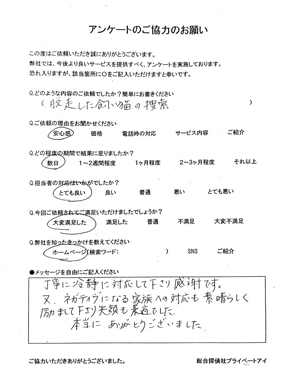 アンケートのご協力のお願い
この度はご依頼いただき誠にありがとうございます。
弊社では、今後より良いサービスを提供すべく、アンケートを実施しております。
恐れ入りますが、該当箇所に〇をご記入いただけますと幸いです。
Q.どのような内容のご依頼でしたか？簡単にお書きください
（脱走した飼い猫の捜索）
Q.ご依頼の理由をお聞かせください
安心感 価格 電話時の対応 サービス内容 ご紹介
Q.どの程度の期間で結果に至りましたか？
数日 1～2週間程度 1ヶ月程度 2～3ヶ月程度 それ以上
Q.担当者の対応はいかがでしたか？
とても良い 良い 普通 悪い とても悪い
Q.今回ご依頼されてご満足いただけましたでしょうか？
大変満足した 満足した 普通 不満足 大変不満足
Q.弊社を知ったきっかけを教えてください
ホームページ（検索ワード: ） SNS ご紹介
●メッセージを自由にご記入ください
丁寧に冷静に対応して下さり感謝です。
又、ネガティヴになる家族への対応も素晴らしく
励まして下さり笑顔も
本当にありがとうございました
ご協力いただきありがとうございました。
総合探偵社プライベートアイ